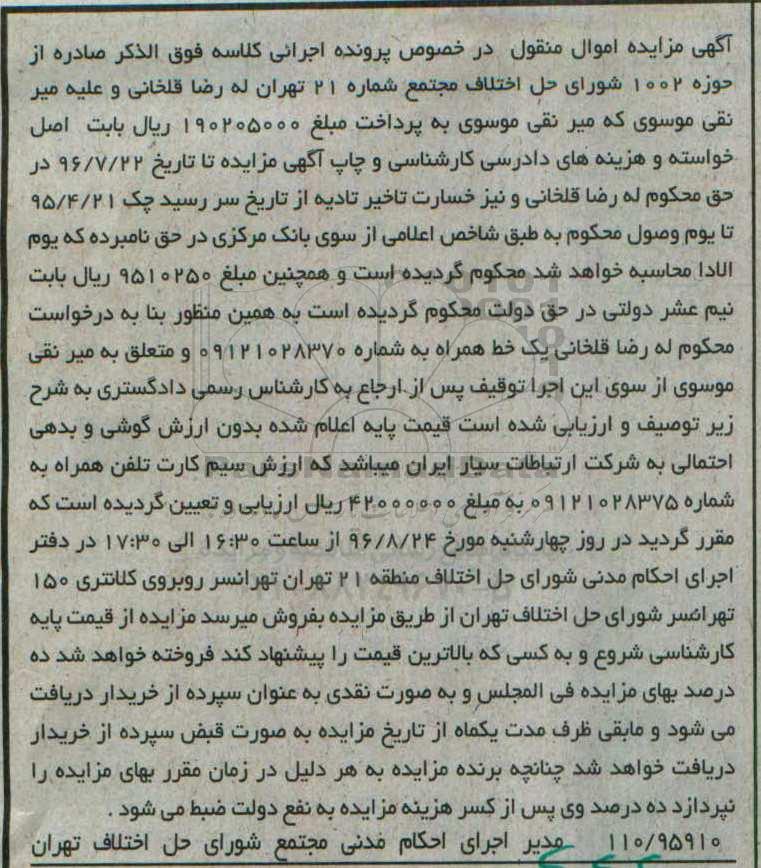 آگهی مزایده اموال منقول در خصوص پرونده اجرائی کلاسه فوق الذکر صادره از
حوزه ۱۰۰۲ شورای حل اختلاف مجتمع شماره ۲۱ تهران له رضا قلخانی و علیه میر
نقی موسوی که میر نقی موسوی به پرداخت مبلغ ۱۹۰۲۰۵۰۰۰ ریال بابت اصل
خواسته و هزینه های دادرسی کارشناسی و چاپ آگهی مزایده تا تاریخ ۹۶/۷/۲۲ در
حق محکوم له رضا قلخانی و نیز خسارت تاخیر تادیه از تاریخ سر رسید چک ۹۵/۴/۲۱
تا یوم وصول محکوم به طبق شاخص اعلامی از سوی بانک مرکزی در حق نامبرده که یوم
الادا محاسبه خواهد شد محکوم گردیده است و همچنین مبلغ ۹۵۱۰۲۵۰ ریال بابت
نیم عشر دولتی در حق دولت محکوم گردیده است به همین منظور بنا به درخواست
محکوم له رضا قلخانی یک خط همراه به شماره ۰۹۱۲۱۰۲۸۳۷۰ و متعلق به میر نقی
موسوی از سوی این اجرا توقیف پس از ارجاع به کارشناس رسمی دادگستری به شرح
زیر توصیف و ارزیابی شده است قیمت پایه اعلام شده بدون ارزش گوشی و بدهی
احتمالی به شرکت ارتباطات سیار ایران میباشد که ارزش سیم کارت تلفن همراه به
شماره ۰۹۱۲۱۰۲۸۳۷۵ به مبلغ ۴۲۰۰۰۰۰۰ ریال ارزیابی و تعیین گردیده است که
مقرر گردید در روز چهارشنبه مورخ ۹۶/۸/۲۴ از ساعت ۱۶:۳۰ الی ۱۷:۳۰ در دفتر
اجرای احکام مدنی شورای حل اختلاف منطقه ۲۱ تهران تهرانسر روبروی کلانتری ۱۵۰
تهرانسر شورای حل اختلاف تهران از طریق مزایده بفروش میرسد مزایده از قیمت پایه
کارشناسی شروع و به کسی که بالاترین قیمت را پیشنهاد کند فروخته خواهد شد ده
درصد بهای مزایده فی المجلس و به صورت نقدی به عنوان سپرده از خریدار دریافت
می شود و مابقی ظرف مدت یکماه از تاریخ مزایده به صورت قبض سپرده از خریدار
دریافت خواهد شد چنانچه برنده مزایده به هر دلیل در زمان مقرر بهای مزایده را
نپردازد ده درصد وی پس از کسر هزینه مزایده به نفع دولت ضبط می شود .
۱۱۰/۹۵۹۱۰ مدیر اجرای احکام مدنی مجتمع شورای حل اختلاف تهران